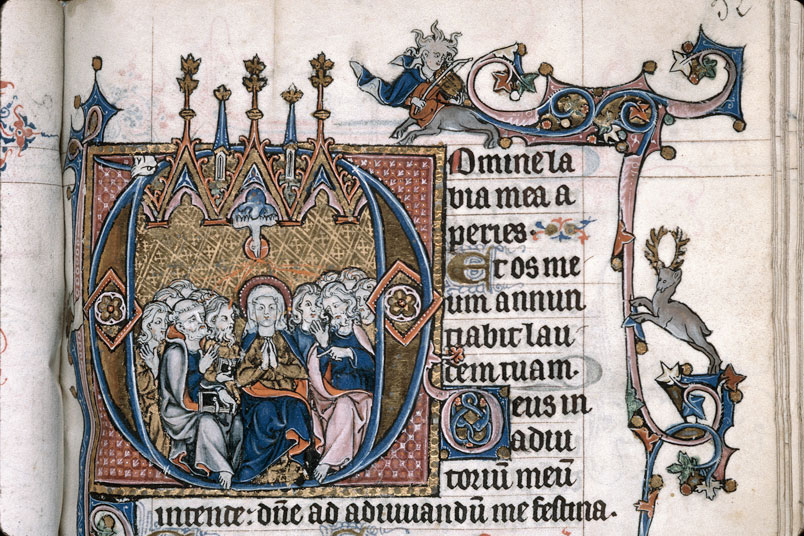 Domine la
bia mea a
peries.
Et os me
um annun
tiabit lau
dem tuam.
Deus in
adiu
toriū meū
intente: dn̄e ad adiuuandū me festina.